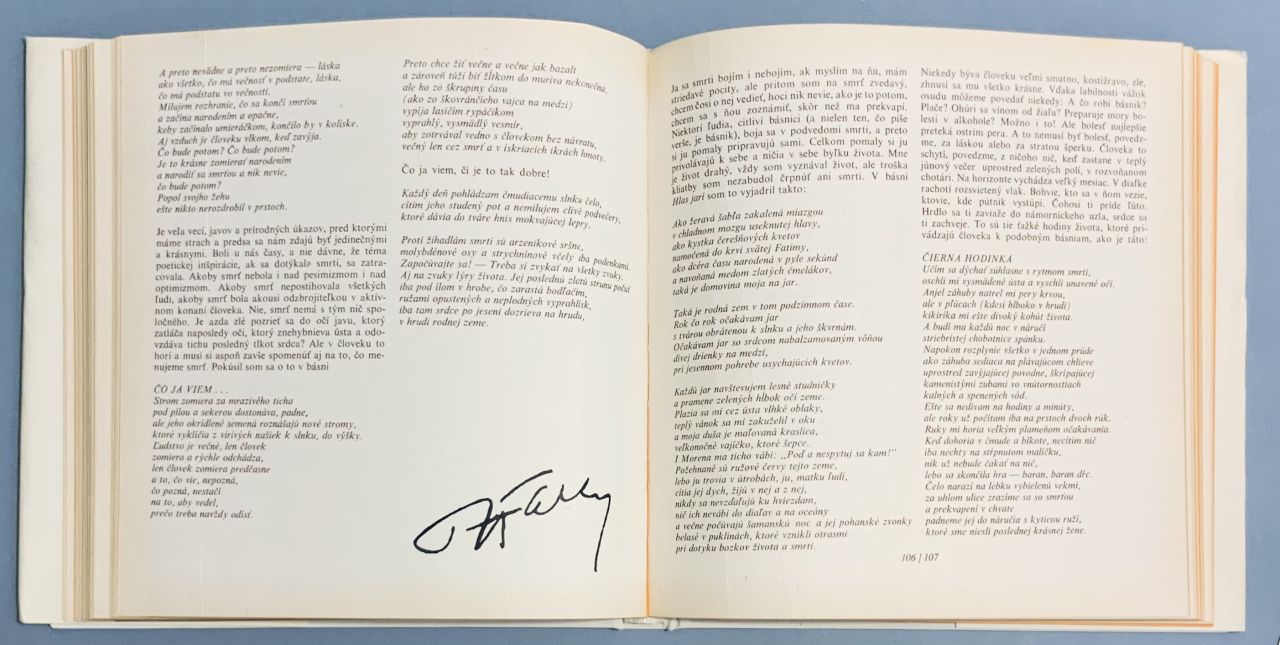 A preto nevädne a preto nezomiera — láska
ako všetko, čo má večnosť v podstate, láska,
čo má podstatu vo večnosti.
Milujem rozhranie, čo sa končí smrťou
a začína narodením a opačne,
keby začínalo umieráčkom, končilo by v kolíske.
Aj vzduch je človeku vlkom, keď zavýja.
Čo bude potom? Čo bude potom?
Je to krásne zomierať narodením
a narodiť sa smrťou a nik nevie,
čo bude potom?
Popol svojho žehu
ešte nikto nerozdrobil v prstoch.
Je veľa vecí, javov a prírodných úkazov, pred ktorými
máme strach a predsa sa nám zdajú byť jedinečnými
a krásnymi. Bolí u nás časy, a nie dávne, že téma
poetickej inšpirácie, ak sa dotýkala smrti, sa zatra-
covala. Akoby smrť nebola i nad pesimizmom i nad
optimizmom. Akoby smrť nepostihovala všetkých
ľudí, akoby smrť bola akousi odzbrojiteľkou v aktív-
nom konaní človeka. Nie, smrť nemá s tým nič spo-
ločného. Je azda zlé pozrieť sa do očí javu, ktorý
zatláča naposledy oči, ktorý znehybnieva ústa a odo-
vzdáva tichu posledný tlkot srdca? Ale v človeku to
horí a musí si aspoň zavše spomenúť aj na to, čo me-
nujeme smrť. Pokúsil som sa o to v básni
ČO JA VIEM . . .
Strom zomiera za mrazivého ticha
pod pílou a sekerou dostonáva, padne,
ale jeho okrídlené semená roznášajú nové stromy,
ktoré vyklíčia z vírivých našiek k slnku, do výšky.
Ľudstvo je večné, len človek
zomiera a rýchle odchádza,
len človek zomiera predčasne
a to, čo vie, nepozná,
čo pozná, nestačí
na to, aby vedel,
prečo treba navždy odísť.
Preto chce žiť večne a večne jak bazalt
a zároveň túži biť žĺtkom do muriva nekonečna,
ale ho zo škrupiny času
(ako zo škovránčieho vajca na medzi)
vypíja lasičím rypáčikom
vyprahlý, vysmädlý vesmír,
aby zotrvával vedno s človekom bez návratu,
večný len cez smrť a v iskriacich ikrách hmoty.
Čo ja viem, či je to tak dobre!
Každý deň pohládzam čmudiacemu slnku čelo,
cítim jeho studený pot a nemilujem clivé podvečery,
ktoré dávia do tváre hnis mokvajúcej lepry.
Proti žihadlám smrti sú arzenikové sršne,
molybdénové osy a strychnínové včely iba podenkami.
Započúvajte sa! — Treba si zvykať na všetky zvuky.
Aj na zvuky lýry života. Jej poslednú zlatú strunu počuť
iba pod ílom v hrobe, čo zarastá bodľačím,
ružami opustených a neplodných vyprahlísk,
iba tam srdce po jeseni dozrieva na hrudu,
v hrudi rodnej zeme.
Ja sa smrti bojím i nebojím, ak myslím na ňu, mám
striedavé pocity, ale pritom som na smrť zvedavý,
chcem čosi o nej vedieť, hoci nik nevie, ako je to potom,
chcem sa s ňou zoznámiť, skôr než ma prekvapí.
Niektorí ľudia, citliví básnici (a nielen ten, čo píše
verše, je básnik), boja sa v podvedomí smrti, a preto
si ju pomaly pripravujú sami. Celkom pomaly si ju
privolávajú k sebe a ničia v sebe byľku života. Mne
je život drahý, vždy som vyznával život, ale troška
kliatby som nezabudol črpnúť ani smrti. V básni
Hlas jari som to vyjadril takto:
Ako žeravá šabľa zakalená miazgou
v chladnom mozgu useknutej hlavy,
ako kystka čerešňových kvetov
namočená do krvi svätej Fatimy,
ako dcéra času narodená v pyle sekúnd
a navoňaná medom zlatých čmelákov,
taká je domovina moja na jar.
Taká je rodná zem v tom podzimnom čase.
Rok čo rok očakávam jar
s tvárou obrátenou k slnku a jeho škvrnám.
Očakávam jar so srdcom nabalzamovaným vôňou
divej drienky na medzi,
pri jesennom pohrebe usychajúcich kvetov.
Každú jar navštevujem lesné studničky
a pramene zelených hĺbok očí zeme.
Plazia sa mi cez ústa vlhké oblaky,
teplý vánok sa mi zakuželil v oku
a moja duša je maľovaná kraslica,
veľkonočné vajíčko, ktoré šepce.
I Morena ma ticho vábi: „Poď a nespytuj sa kam!“
Požehnané sú ružové červy tejto zeme,
lebo ju trovia v útrobách, ju, matku ľudí,
cítia jej dych, žijú v nej a z nej,
nikdy sa nevzďaľujú ku hviezdam,
nič ich nevábi do diaľav a na oceány
a večne počúvajú šamanskú noc a jej pohanské zvonky
belasé v puklinách, ktoré vznikli otrasmi
pri dotyku bozkov života a smrti.
Niekedy býva človeku veľmi smutno, kostižravo, zle,
zhnusí sa mu všetko krásne. Vďaka labilnosti vážok
osudu môžeme povedať niekedy: A čo robí básnik?
Plače? Ohúri sa vínom od žiaľu? Preparuje mory bo-
lesti v alkohole? Možno i to! Ale bolesť najlepšie
preteká ostrím pera. A to nemusí byť bolesť, povedz-
me, za láskou alebo za stratou šperku. Človeka to
schytí, povedzme, z ničoho nič, keď zastane v teplý
júnový večer uprostred polí, v rozvoňanom
chotári. Na horizonte vychádza veľký mesiac. V diaľke
rachotí rozsvietený vlak. Bohvie, kto sa v ňom vezie,
ktovie, kde pútnik vystúpi. Čohosi ti príde ľúto.
Hrdlo sa ti zaviaže do námorníckeho uzla, srdce sa
ti zachveje. To sú tie ťažké hodiny života, ktoré pri-
vádzajú človeka k podobným básniam, ako je táto:
ČIERNA HODINKA
Učím sa dýchať súhlasne s rytmom smrti,
oschli mi vysmädené ústa a vyschli unavené oči.
Anjel záhuby natrel mi pery krvou,
ale v pľúcach (kdesi hlboko v hrudi)
kikiríka mi ešte divoký kohút života.
A budí ma každú noc v náručí
striebristej chobotnice spánku.
Napokon rozplynie všetko v jednom prúde
ako záhuba sediaca na plávajúcom chlieve
uprostred zavýjajúcej povodne, škrípajúcej
kamenistými zubami vo vnútornostiach
kalných a spenených vôd.
Ešte sa nedívam na hodiny a minúty,
ale roky už počítam iba na prstoch dvoch rúk.
Ruky mi horia veľkým plameňom očakávania.
Keď dohoria v čmude a blkote, necítim nič
iba nechty na stŕpnutom malíčku,
nik už nebude čakať na nič,
lebo sa skončila hra — baran, baran dĕc.
Čelo narazí na lebku vybielenú vekmi,
za uhlom ulice zrazíme sa so smrťou
a prekvapení v chvate
padneme jej do náručia s kyticou ruží,
ktoré sme niesli poslednej krásnej žene.
106 | 107